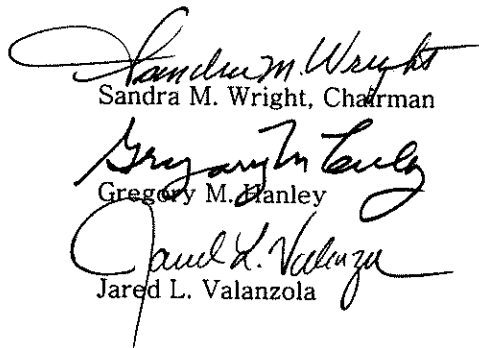 Sandra M. Wright
Sandra M. Wright, Chairman
Gregory M. Hanley
Gregory M. Hanley
Jared L. Valanzola